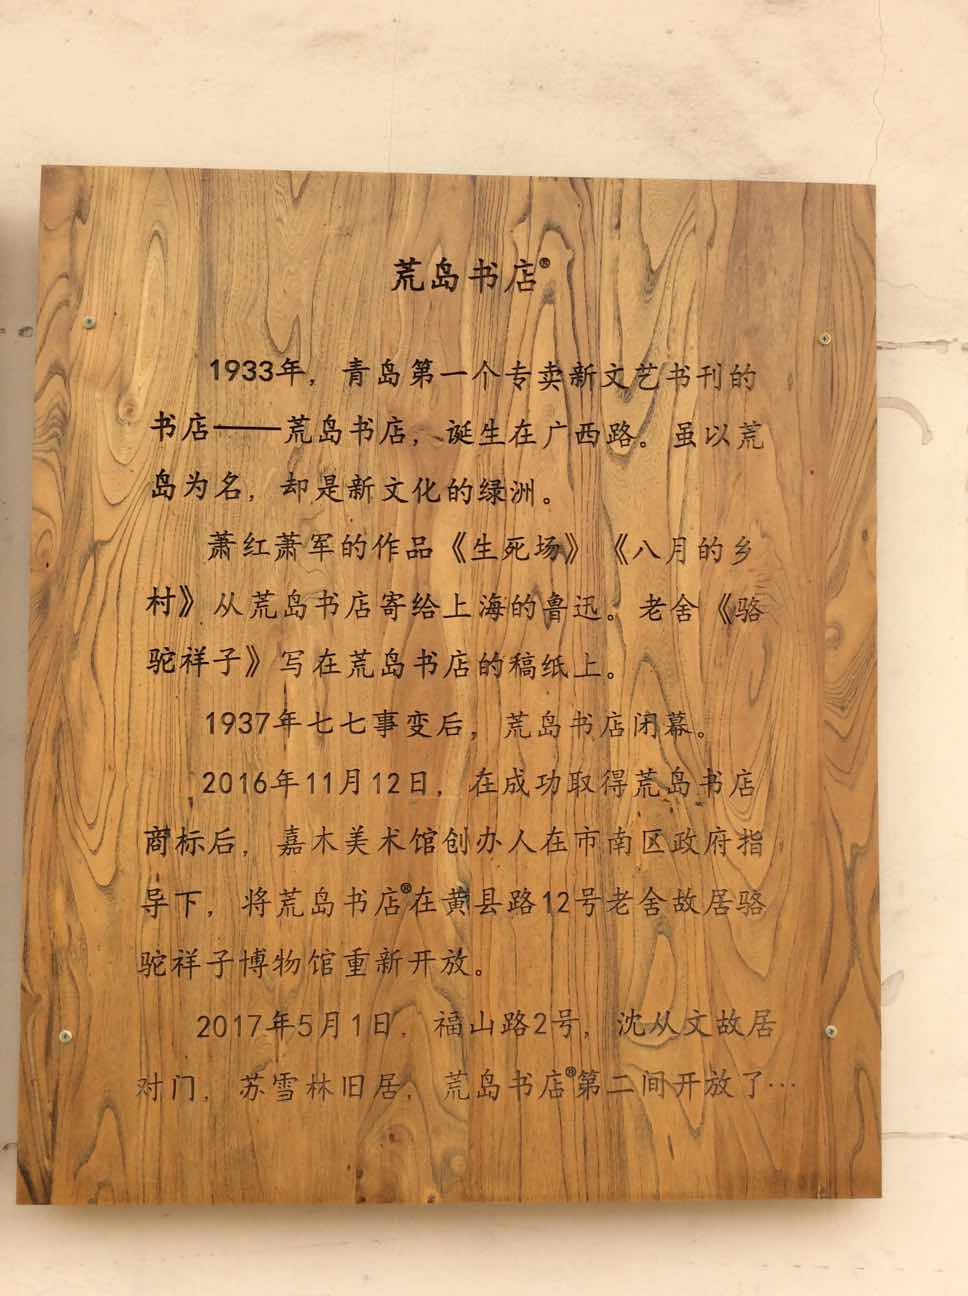 荒岛书店®
1933年，青岛第一个专卖新文艺书刊的
书店——荒岛书店，诞生在广西路。虽以荒
岛为名，却是新文化的绿洲。
萧红萧军的作品《生死场》《八月的乡
村》从荒岛书店寄给上海的鲁迅。老舍《骆
驼祥子》写在荒岛书店的稿纸上。
1937年七七事变后，荒岛书店闭幕。
2016年11月12日，在成功取得荒岛书店
商标后，嘉木美术馆创办人在市南区政府指
导下，将荒岛书店®在黄县路12号老舍故居骆
驼祥子博物馆重新开放。
2017年5月1日，福山路2号，沈从文故居
对门，苏雪林旧居，荒岛书店®第二间开放了…